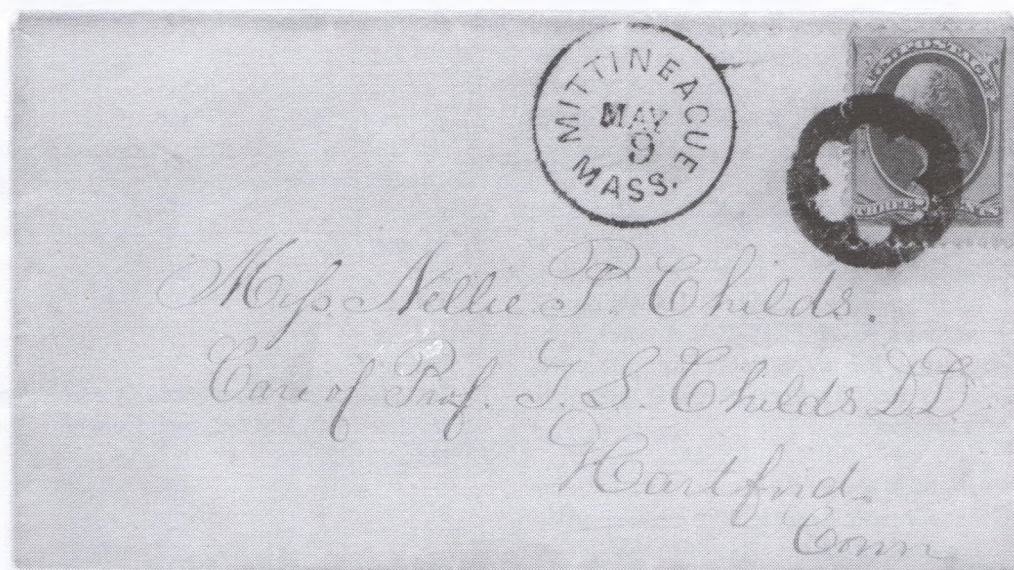 MITTINEAGUE
MAY
9
MASS.
U.S. POSTAGE
Miss. Nellie P. Childs.
Care of Prof. T. S. Childs D.D.
Hartford.
Conn